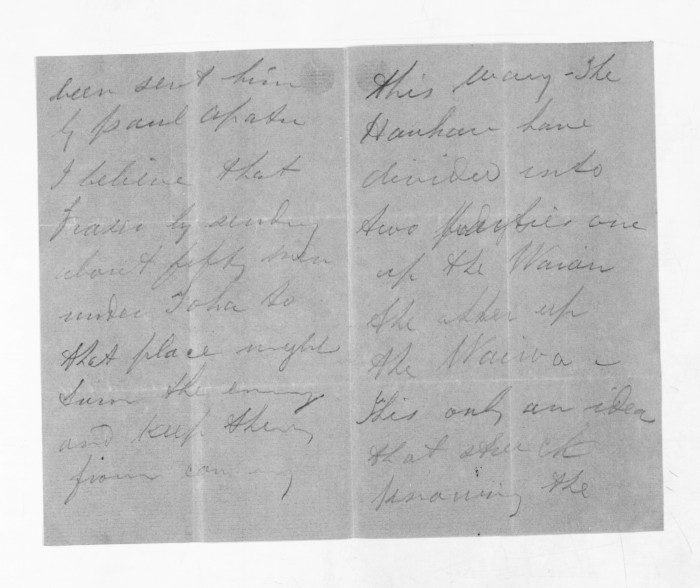 been sent him
by paul apatu
I believe that
Fraser by sending
about fifty men
under Toha to
that place might
turn the enemy
and keep them
from coming
this way - The
Hauhau have
divided into
two parties one
up the Waiau
the other up
the Wairoa -
This only an idea
that struck
knowing the